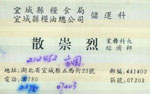 宜城縣糧食局
宜城縣糧油總公司 儲運科
散崇烈 業務科長
經濟師
212452
地址:湖北省宜城縣正西街23號 郵編:441400
電話: 電掛:07203
07003